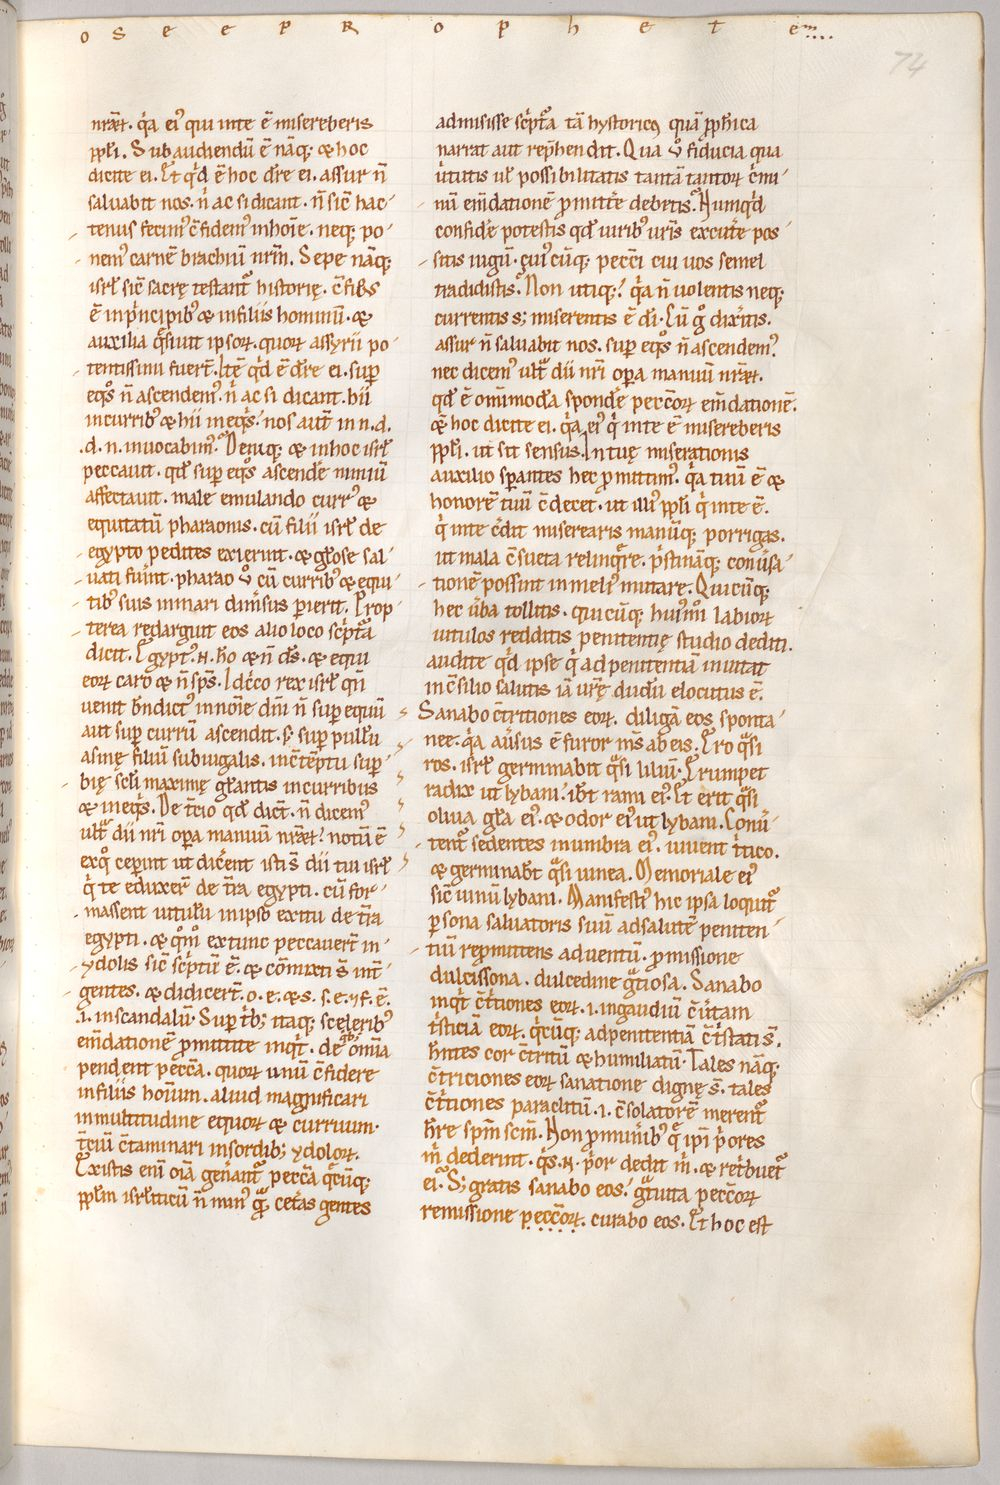 OSEE PROPHETE....
74
nr̄aꝝ. q̓a ei᷒ qui inte ē misereberis
pp̄li. Subaudiendū ē nāq; & hoc
dicite ei. Et q̓d ē hoc dr̄e ei. assur n̄
saluabit nos. n̓ ac si dicant. n̄ sic̄ hac-
tenus fecim᷒ c̄fidem᷒ inhoīe. neq; po-
nem᷒ carnē brachiū nr̄m. Sepe nāq;
isrl̄ sic̄ sacrę testant᷑ historię. c̄fisus
ē inp̓ncipib᷒ & infiliis hominū. &
auxilia q̄siuit ipsoꝝ. quoꝝ assyrii po-
tentissimi fuer̄t. Itē q̓d ē dr̄e ei. sup̄
eq̊s n̄ ascendem᷒. n̓ ac si dicant. hii
incurrib᷒ & hii ineq̊s. nos aut̄ in n. d.
.d. n. inuocabim᷒. Deniq; & inhoc isrl̄
peccauit. qd̄ sup̄ eq̊s ascendē nimiū
affectauit. male emulando curr᷒ &
equitatū pharaonis. cū filii isrl̄ de
egypto pedites exierunt. & gl̄ose sal-
uati fuīnt. pharao v̊ cū currib᷒ & equi-
tib᷒ suis inmari dimīsus perierit. Prop-
terea redarguit eos alio loco sc̓pt̄a
dicit. Egypt᷒. N. ho & n̄ ds̄. & equi
eoꝝ caro & n̄ sps̄. Idcͦco rex isrl̄ qn̄
uenit bn̄dict᷒ innoīe dn̄i n̄ sup̄ equū
aut sup̄ currū ascendit. s; sup̄ pullū
asinę filiū subiugalis. inc̄tēptu sup̄-
bię scl̄i maximę gl̄antis incurribus
& ineq̊s. De t̓cio qd̄ dict̄. n̄ dicem᷒
ult̄ dii nr̄i opa manuū nr̄aꝝ. notū ē
exq̊ ceperint ut dic̄ent isti s̄ dii tui isrl̄
q̓ te eduxer̄ de t̄ra egypti. cū for-
massent uitulū inipso exitu de t̄ra
egypti. & q̊m̊ extunc peccauer̄t in-
ydolis sic̄ sc̓ptū ē. & cōmixti s̄ int̄
gentes. & didicer̄t. o. e. & s. s. e. If. ē.
.i. inscandalū. Sup̄ t̓b; itaq; sceleribus
em̄dationē p̄mittite inq̓t. de q̓b᷒ om̄ia
pendent pecc̄a. quoꝝ unū c̄fidere
infiliis hoīum. aliud magnificari
inmultitudine equoꝝ & curruum.
t̄ciū c̄taminari insordib; ydoloꝝ.
Existis eni᷒ oīa gen̄ant᷑ pecc̄a q̓cūq;
pp̄lm isrl̄iticū n̄ min᷒ q̄; cetas gentes
admisisse sc̓pt̄a tā hystoricꝰ quā pp̄hica
narrat aut rep̄hendit. Qua v̊ fiducia qua
u̓tutis ul̄ possibilitatis tantā tantoꝝ c̓mi-
nū em̄dationē p̄mitt̄e debetis. Nunq̓d
confidē potestis qd̄ uirib᷒ ur̄is excut̄e pos-
sitis iugū. cui᷒cūq; pecc̄i cui uos semel
tradidistis. Non utiq;. q̓a n̄ uolentis neq;
currentis s; miserentis ē di̓. Cū g̊ dix̄itis.
assur n̄ saluabit nos. sup̄ eq̊s n̄ ascendem᷒.
nec dicem᷒ ult̄ dii nr̄i opa manuū nr̄aꝝ.
qd̄ ē om̄imoda spondē pecc̄oꝝ em̄dationē.
& hoc dicite ei. q̓a ei᷒ q̓ inte ē misereberis
pp̄li. ut sit sensus. In tuę miserationis
auxilio sperantes hec p̄mittim᷒. q̓a tuū ē &
honorē tuū c̄decet. ut illi᷒ pp̄li q̓ inte ē.
q̓ inte c̄dit miserearis manūq; porrigas.
ut mala c̄sueta relinq̄re. p̓stināq; conūsa-
tionē possint inmeli᷒ mutare. Quicūq;
hec ūba tollitis. quicūq; hui᷒m̊ labioꝝ
uitulos redditis penitentię studio dediti.
audite q̓d ipse q̓ ad penitentiā inuitat
inc̄silio salutis iā ur̄ę dudū elocutus ē.
Sanabo c̄tritiones eoꝝ. diligā eos sponta-
nee. q̓a aūsus ē furor ms̄ ab eis. Ero q̄si
ros. isrl̄ germinabit q̄si liliū. Erumpet
radix ut lybani. ibt̄ rami ei᷒. Et erit q̄si
oliua gl̄a ei᷒. & odor ei᷒ ut lybani. Conū-
tent᷑ sedentes inumbra ei᷒. uiuent t̓tico.
& germinab̄t q̄si uinea. Memoriale ei᷒
sic̄ uinū lybani. Manifesti᷒ hic ipsa loquit᷑
p̱sona saluatoris suū adsalutē peniten-
tiū rep̄mittens aduentū. p̄missione
dulcissona. dulcedine ḡtiosa. Sanabo
inq̓t c̄t̓tiones eoꝝ. i. ingaudiū c̄ūtam
t̓sticiā eoꝝ. q̓cūq; adpenitentiā c̄t̓stati s̄.
hn̄tes cor c̄tritū & humiliatū. Tales nāq;
c̄triciones eoꝝ sanatione dignę s̄. tales
c̄t̓tiones paraclitū. i. c̄solatorē merent᷑
hr̄e spm̄ scm̄. Non p̄ munīb᷒ q̄ ip̄i p̓ores
m̓ dederint. q̓s. N. p̓or dedit m̓. & ret̓buet᷑
ei. S; gratis sanabo eos. ḡtuita pecc̄oꝝ
remissione pecc̄oꝝ. curabo eos. Et hoc est